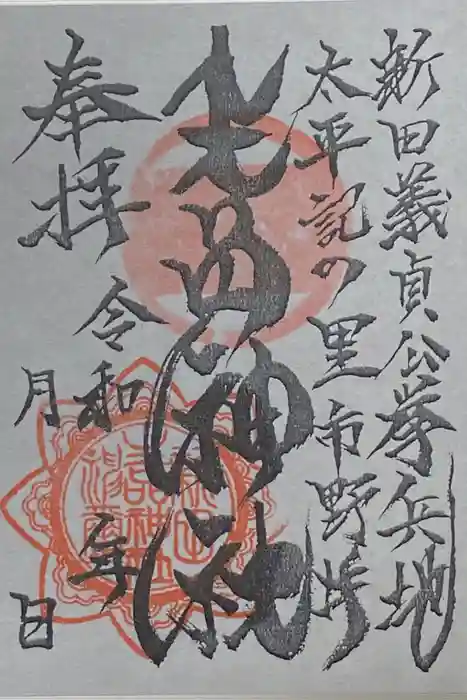 新田義貞公挙兵地
太平記の里市野井
生品神社
奉拝
令和二年
月
日